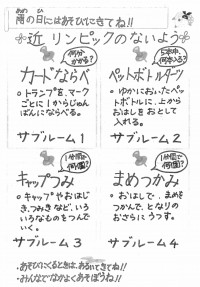 雨の日にはあそびにきてね!!
近リンピックのないよう
何分かかる?
カードならべ
トランプを、マークごとに1からじゅんばんにならべる。
サブルーム1
5本中何本入る?
ペットボトルダーツ
ゆかにおいたペットボトルに、上からおはしをおとして入れる。
サブルーム2
1分間で何個?
キャップつみ
キャップやおはじき、つみきなど、いろいろなものをつんでいく。
サブルーム3
1分間で何個?
まめつかみ
おはしで、まめをつかんで、となりのおさらにうつす。
サブルーム4
・あそびにくるときは、あるいてきてね!!
・みんなでなかよくあそぼうね!!